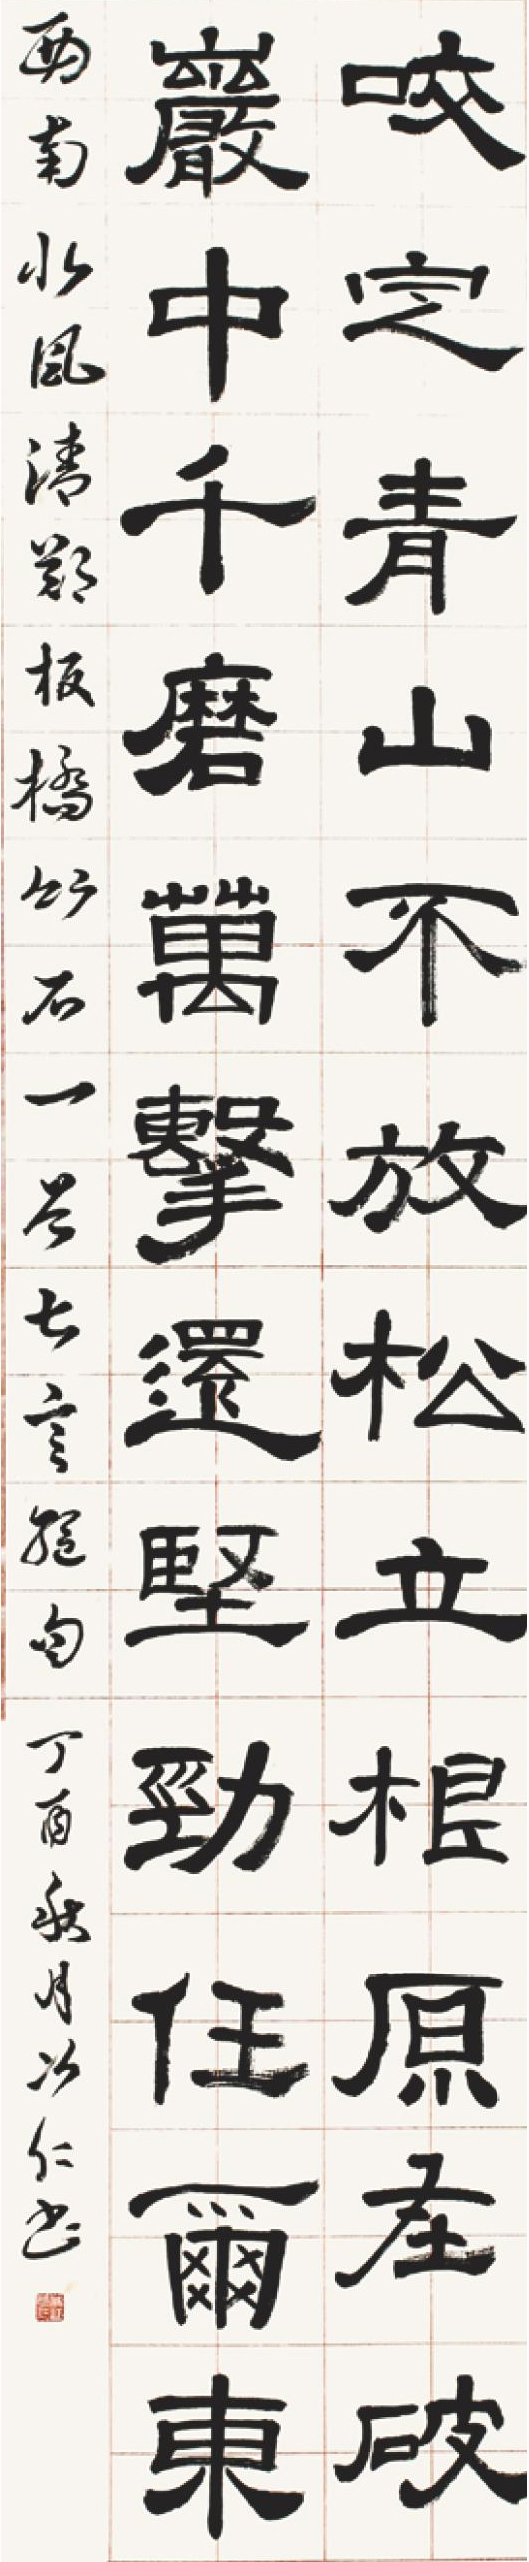 咬定青山不放松立根原在破
巖中千磨萬擊還堅勁任爾東
西南北風清鄭板橋竹石一首七言絕句丁酉秋月以仁书